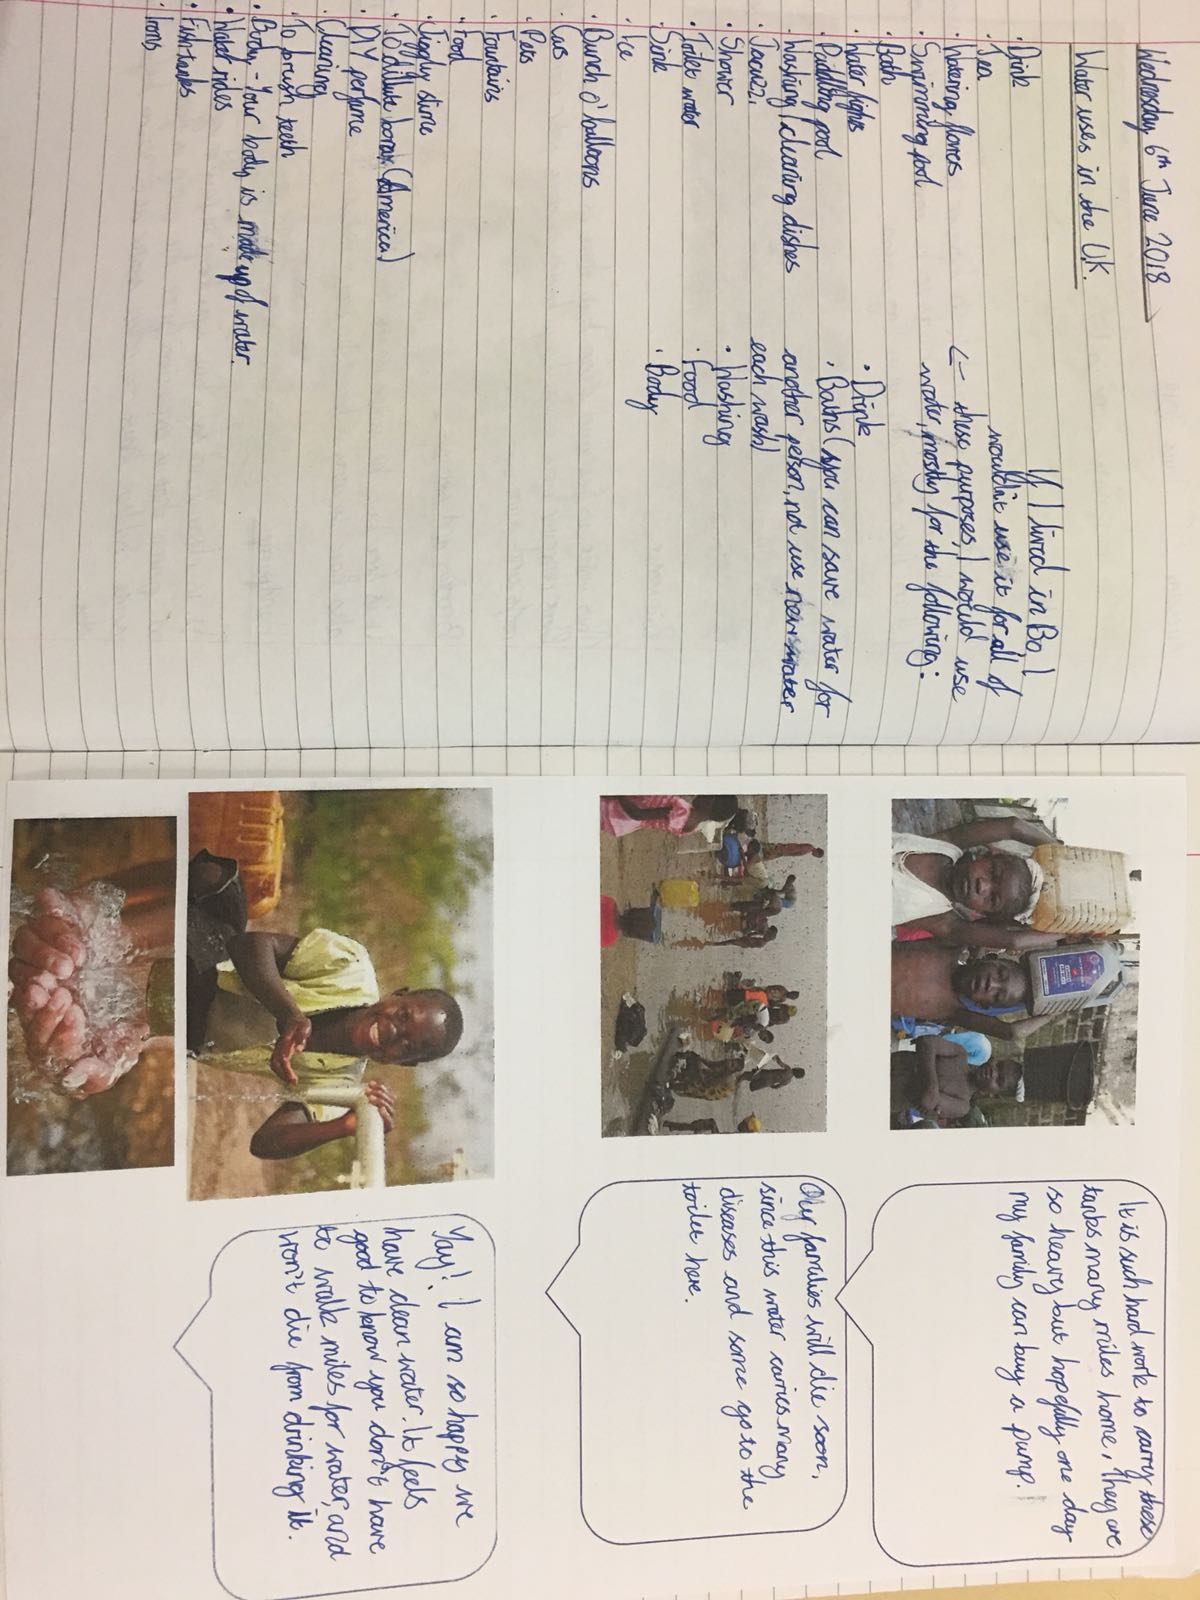 Wednesday 6th June 2018
Water uses in the UK.
• Drink
• Tea
• Watering flowers
• Swimming pool
• Bath
• Water fights
• Paddling pool
• Washing/cleaning dishes
• Jacuzzi
• Shower
• Toilet water
• Sink
• Ice
• Bunch o' balloons
• Cars
• Pets
• Fountains
• Food
• Jiggly slime
• To dilute borax (America)
• DIY perfume
• Cleaning
• To brush teeth
• Body - Your body is made up of water.
• Water rides
• Fish tanks
• Irons
If I lived in Bo, I
wouldn't use it for all of
<- these purposes, I would use
water, mostly for the following:
• Drink
• Baths (you can save water for
another person, not use new water
each wash)
• Washing
• Food
• Body
It is such hard work to carry these
tanks many miles home, they are
so heavy but hopefully one day
my family can buy a pump.
Our families will die soon,
since this water carries many
diseases and some go to the
toilet here.
Yay! I am so happy we
have clean water. It feels
good to know you don't have
to walk miles for water, and
won't die from drinking it.